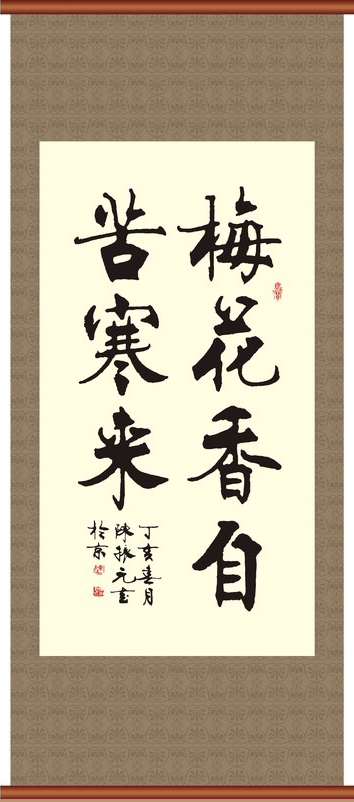 梅花香自
苦寒来
丁亥春月
陈振元书
於京